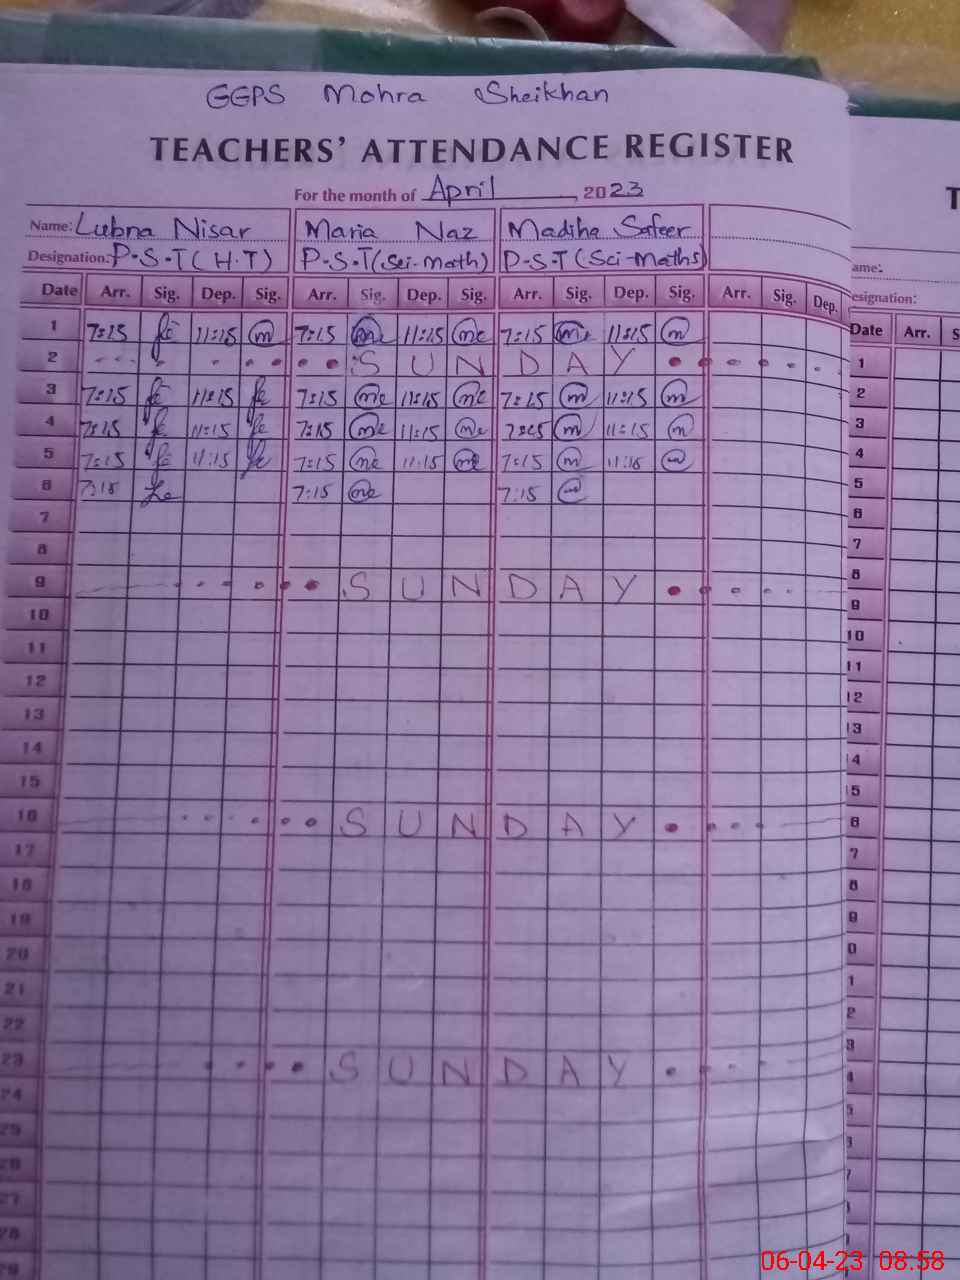 GGPS Mohra Sheikhan
TEACHERS' ATTENDANCE REGISTER
For the month of April, 2023
Name: Lubna Nisar Maria Naz Madiha Safeer
Designation: P.S.T (H.T) P.S.T (Sci-Math) P.S.T (Sci-Maths)
Date Arr. Sig. Dep. Sig. Arr. Sig. Dep. Sig. Arr. Sig. Dep. Sig. Arr. Sig. Dep.
1 7:15 11:15 7:15 11:15 7:15 11:15
2 SUNDAY
3 7:15 11:15 7:15 11:15 7:15 11:15
4 7:15 11:15 7:15 11:15 11:15
5 7:15 11:15 7:15 11:15 7:15 11:15
6 7:15 7:15 7:15
7
8
9 SUNDAY
10
11
12
13
14
15
16 SUNDAY
17
18
19
20
21
22
23 SUNDAY
24
25
26
27
28
29
T
ame:
esignation:
Date Arr. S
1
2
3
4
5
6
7
8
9
10
11
12
13
14
15
6
7
8
9
0
1
2
3
06-04-23 08:58